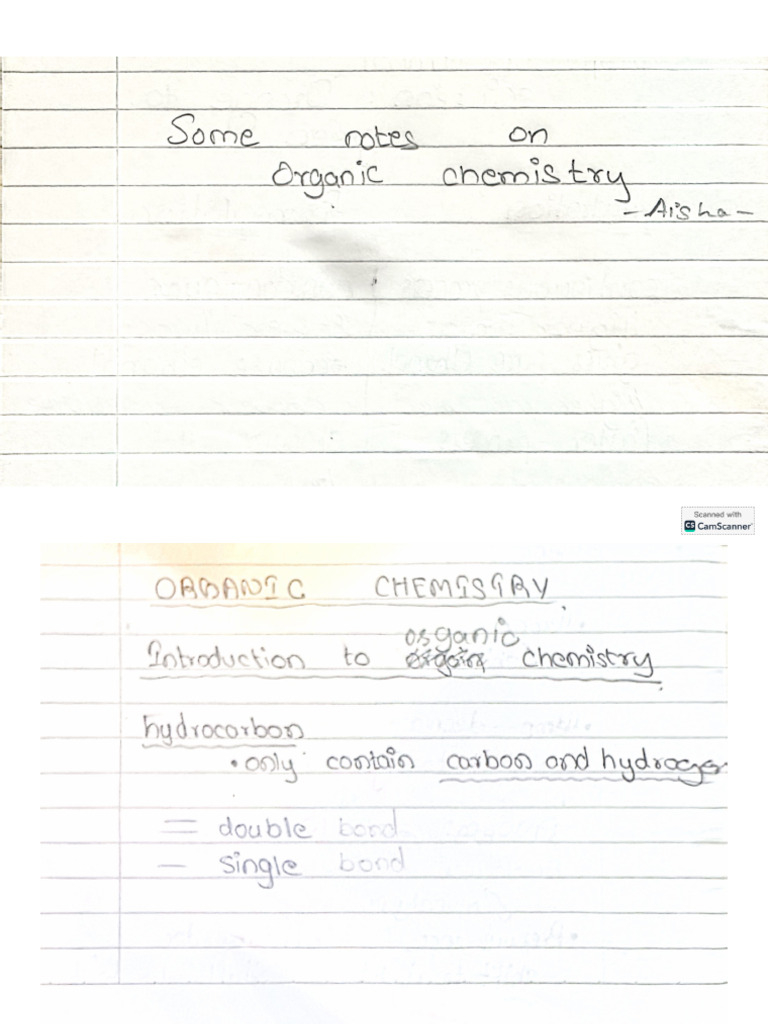 Some notes on
Organic chemistry
- Aisha -
Scanned with
CS CamScanner
ORGANIC CHEMISTRY
Introduction to organic chemistry
hydrocarbon
• only contain carbon and hydrogen
= double bond
- single bond